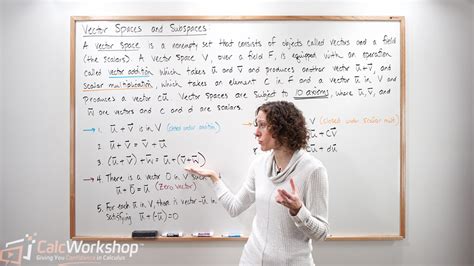 Vector Spaces and Subspaces
A vector space is a nonempty set that consists of objects called vectors and a field
(the scalars). A vector space V, over a field F, is equipped with an operation
called vector addition which takes u⃗ and v⃗ and produces another vector u⃗+v⃗, and
scalar multiplication, which takes an element c in F and a vector u⃗ in V and
produces a vector cu⃗. Vector Spaces are subject to 10 axioms, where u⃗, v⃗, and
w⃗ are vectors and c and d are scalars.
1. u⃗ + v⃗ is in V (closed under addition)
V (closed under scalar mult)
2. u⃗ + v⃗
+ cv⃗
3. (u⃗ + v⃗) + w⃗ = u⃗ + (v⃗ + w⃗)
+ du⃗
4. There is a vector 0 in V such
u⃗ + 0⃗ = u⃗ (Zero vector)
5. For each u⃗ in V, there is vector -u⃗ in
satisfying u⃗ + (-u⃗) = 0
CalcWorkshop.com
Giving You Confidence in Calculus